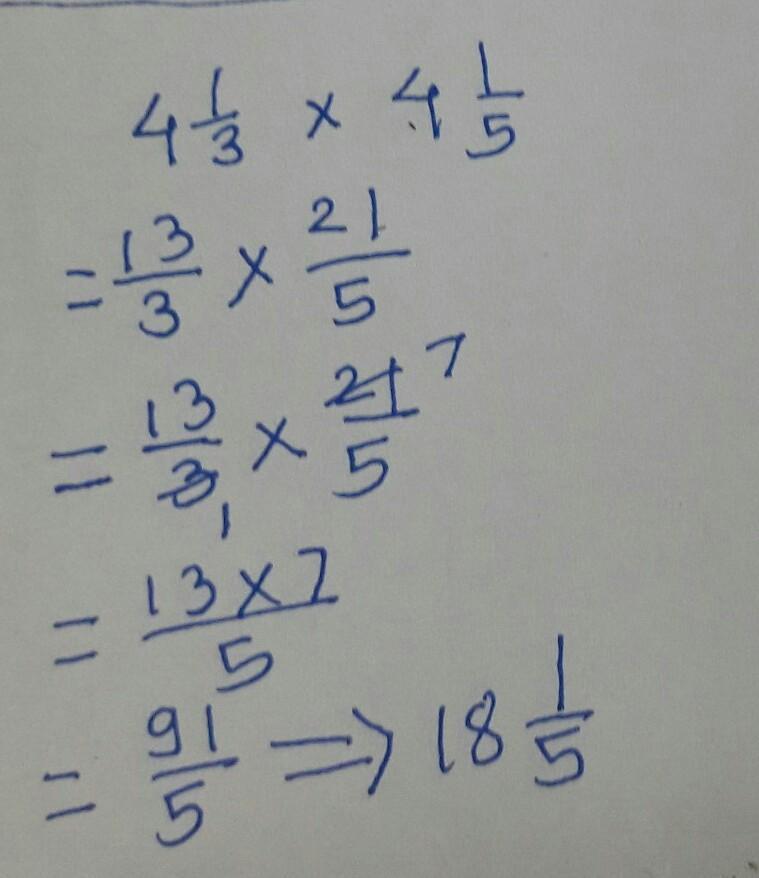 4 1/3 × 4 1/5
= 13/3 × 21/5
= 13/3 1 × 21/5 7
= 13×7/5
= 91/5 ⇒ 18 1/5